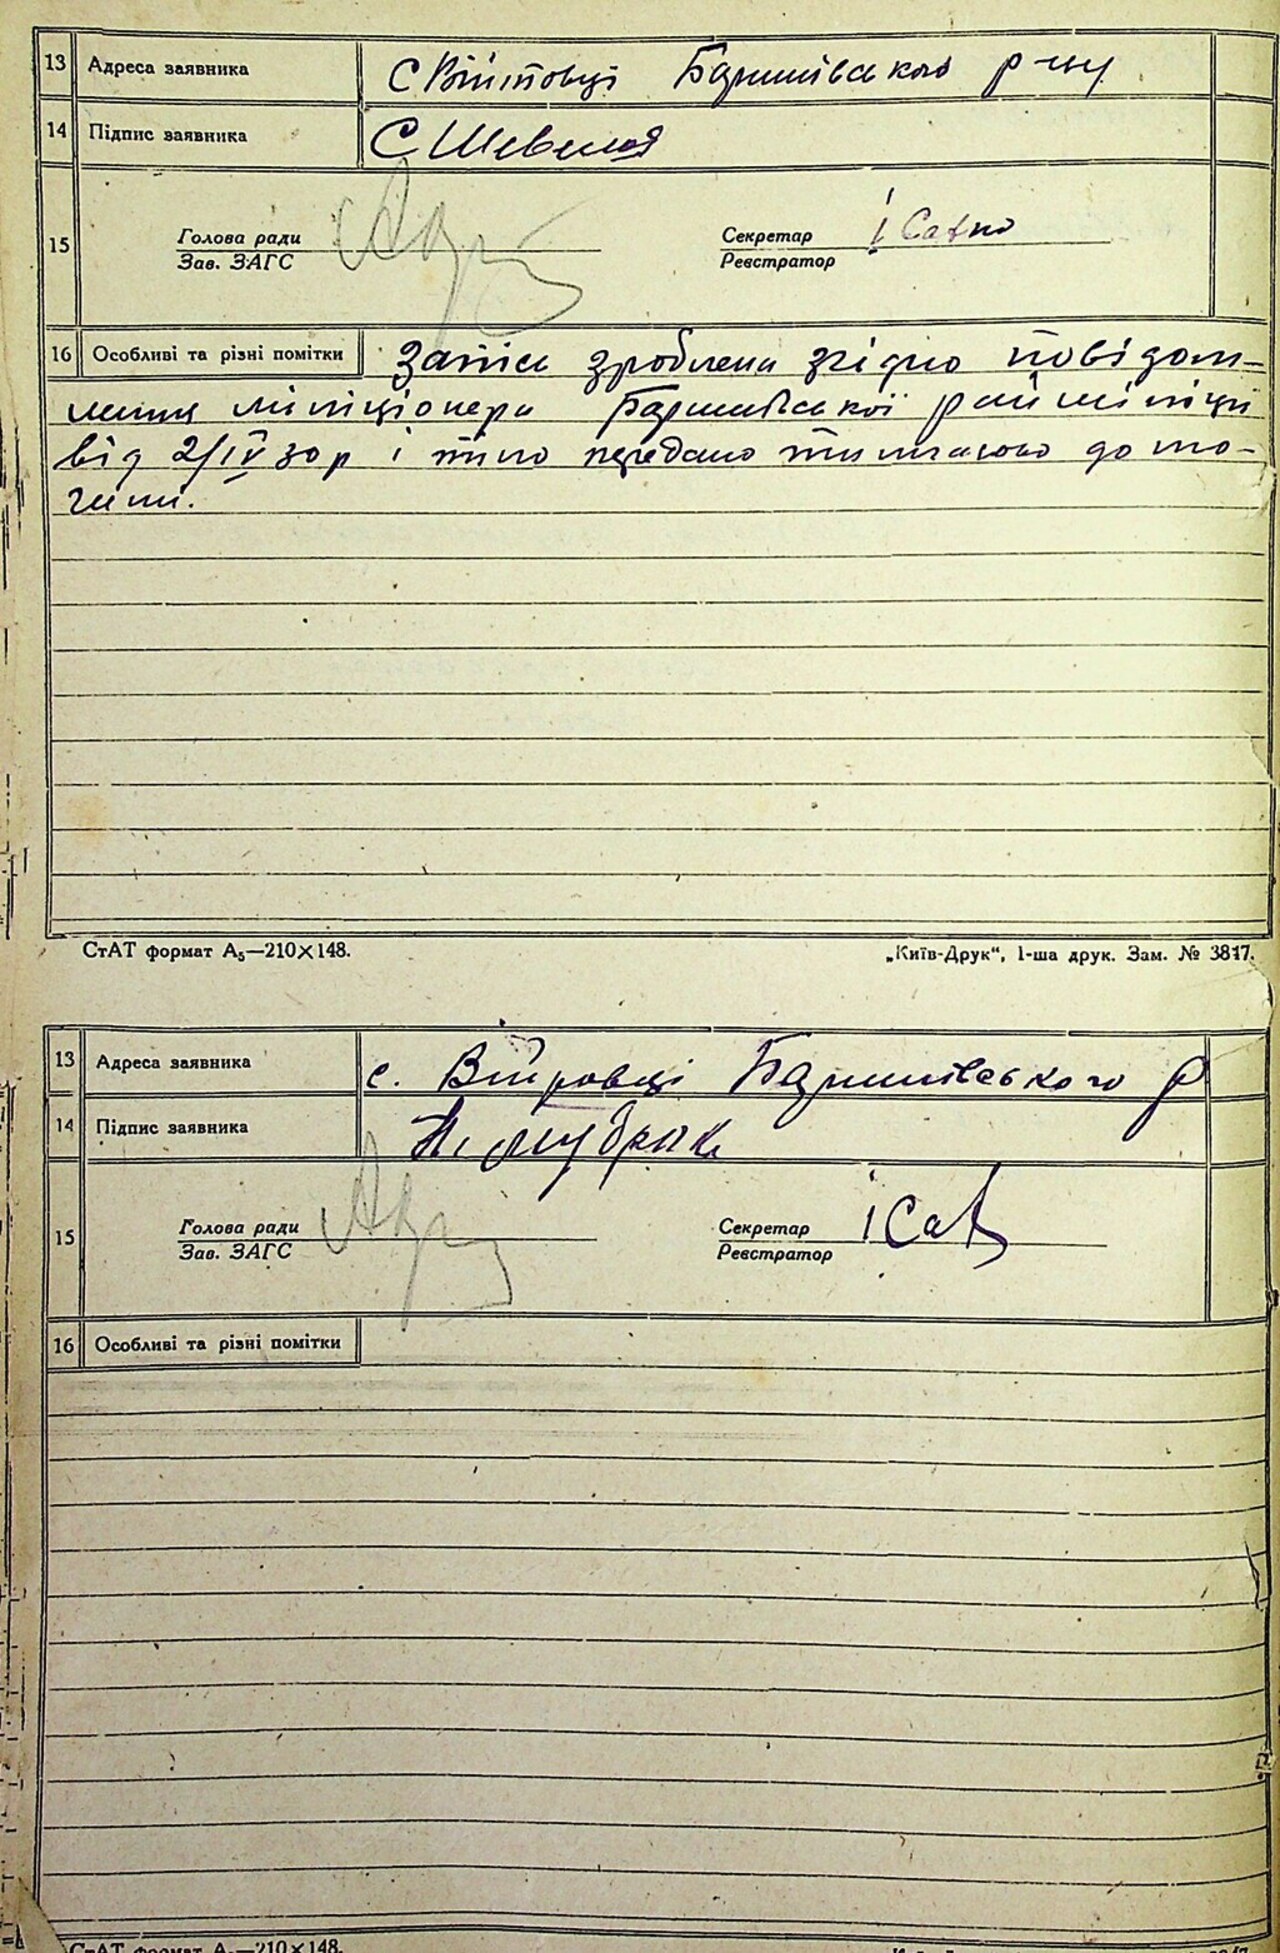 13 Адреса заявника с Війтовці Баришівського р-ну
14 Підпис заявника С Шевели
15 Голова ради Секретар І Савко
Зав. ЗАГС Реєстратор
16 Особливі та різні помітки Запись зроблени згідно повідом-
лення міліціонера Баришівської райміліціи
від 2/IV 30 р і тіло передано тимчасово до мо-
гили.
СтАТ формат А₅—210×148. „Київ-Друк“, 1-ша друк. Зам. № 3817.
13 Адреса заявника с. Війтовці Баришівського р
14 Підпис заявника
15 Голова ради Секретар І Сав
Зав. ЗАГС Реєстратор
16 Особливі та різні помітки
СтАТ формат А₅—210×148.